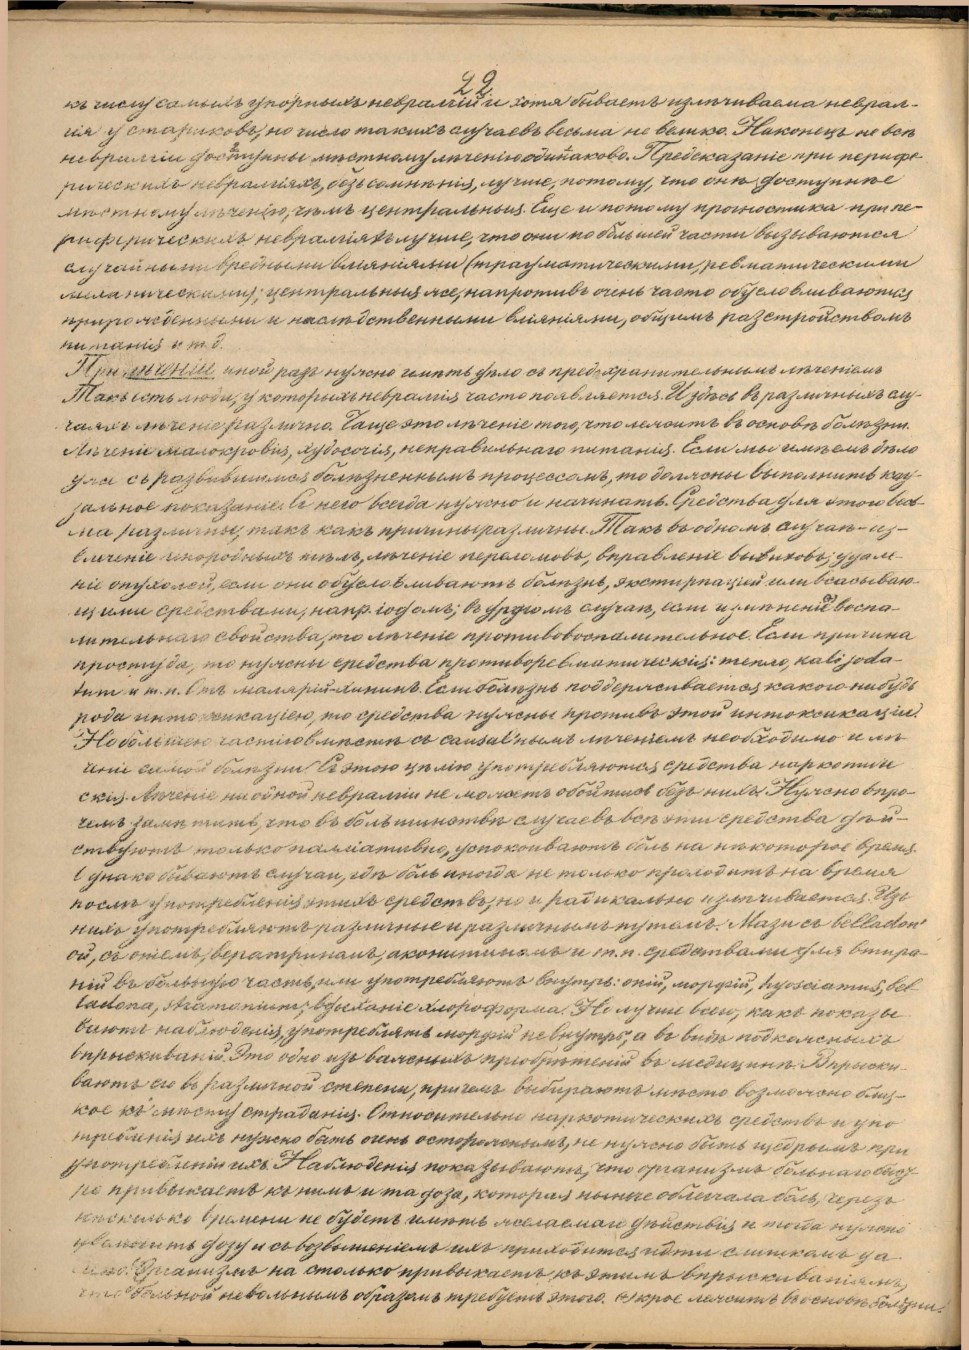 22
къ числу самыхъ упорныхъ невралгій и хотя бываетъ излѣчиваема неврал-
гія у стариковъ, но число такихъ случаевъ весьма не велико. Наконецъ не всѣ
невралгіи доступны мѣстному лѣченію одинаково. Предсказаніе при перифе-
рическихъ невралгіяхъ, безъ сомнѣнія, лучше, потому, что онѣ доступнѣе
мѣстному лѣченію, чѣмъ центральныя. Еще и потому прогностика при пе-
риферическихъ невралгіяхъ лучше, что они по большей части вызываются
случайными вредными вліяніями (травматическими, ревматическими
; центральныя же, напротивъ очень часто обусловливаются
прирожденными и наслѣдственными вліяніями, общимъ разстройствомъ
питанія и т.д.
При лѣченіи иной разъ нужно имѣть дѣло съ предохранительнымъ лѣченіемъ
Такъ есть люди, у которыхъ невралгія часто появляется. И здѣсь въ различныхъ слу-
чаяхъ лѣченіе различно. Чаще это лѣченіе того, что лежитъ въ основѣ болѣзни.
Лѣченіе малокровія, худосочія, неправильнаго питанія. Если мы имѣемъ дѣло
уже съ развившимся болѣзненнымъ процессомъ, то должны выполнить кау-
зальное показаніе. Съ него всегда нужно и начинать. Средства для этого весь-
ма различны, такъ какъ причины различны. Такъ въ одномъ случаѣ - из-
влеченіе инородныхъ тѣлъ, лѣченіе переломовъ, вправленіе вывиховъ; удале-
ніе опухолей, если они обусловливаютъ болѣзнь, экстирпаціей или всасываю-
щими средствами, напр. іодомъ; въ другомъ случаѣ, если измѣненія воспа-
лительнаго свойства, то лѣченіе противовоспалительное. Если причина
простуда, то нужны средства противоревматическія: тепло, kali joda-
tum и т.п. Отъ малярій - хининъ. Если болѣзнь поддерживается какого нибудь
рода интоксикаціею, то средства нужны противъ этой интоксикаціи.
Но большею частію вмѣстѣ съ causal'нымъ лѣченіемъ необходимо и лѣ-
ченіе самой болѣзни. Съ этою цѣлію употребляются средства наркотиче
скія. Лѣченіе ни одной невралгіи не можетъ обойтись безъ нихъ. Нужно впро-
чемъ замѣтить, что въ большинствѣ случаевъ всѣ эти средства дѣй-
ствуютъ только палліативно, успокоиваютъ боль на нѣкоторое время.
Однако бываютъ случаи, гдѣ боль иногда не только проходитъ на время
послѣ употребленія этихъ средствъ, но и радикально излѣчивается. Изъ
нихъ употребляютъ различные и различнымъ путемъ. Мази съ belladon'
ой, съ опіемъ, вератриномъ, аконитиномъ и т.п. средствами для втира-
ній въ больную часть, или употребляютъ внутрь: опій, морфій, hyosciamus, bel
ladona, stramonium; вдыханіе хлороформа. Но лучше всего, какъ показы
ваютъ наблюденія, употреблять морфій не внутрь, а въ видѣ подкожныхъ
впрыскиваній. Это одно изъ важныхъ пріобрѣтеній въ медицинѣ. Впрыски-
ваютъ его въ различной степени, причемъ выбираютъ мѣсто возможно близ-
кое къ мѣсту страданія. Относительно наркотическихъ средствъ и упо
требленія ихъ нужно быть очень осторожнымъ, не нужно быть щедрымъ при
употребленіи ихъ. Наблюденія показываютъ, что организмъ больнаго быст
ро привыкаетъ къ нимъ и та доза, которая нынче облегчала боль, черезъ
нѣсколько времени не будетъ имѣть желаемаго дѣйствія и тогда нужно
увеличить дозу и съ возвышеніемъ ихъ приходится идти слишкомъ да
леко. Организмъ на столько привыкаетъ къ этимъ впрыскиваніямъ,
что больной невольнымъ образомъ требуетъ этого. лежитъ въ основѣ болѣзни.